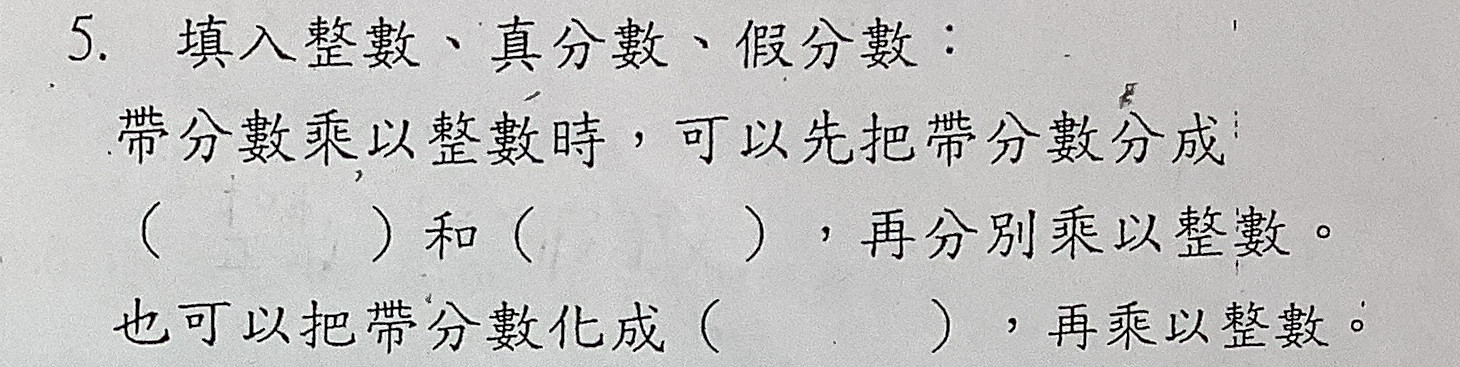 5. 填入整數、真分數、假分數：
帶分數乘以整數時，可以先把帶分數分成
（　　　）和（　　　），再分別乘以整數。
也可以把帶分數化成（　　　），再乘以整數。